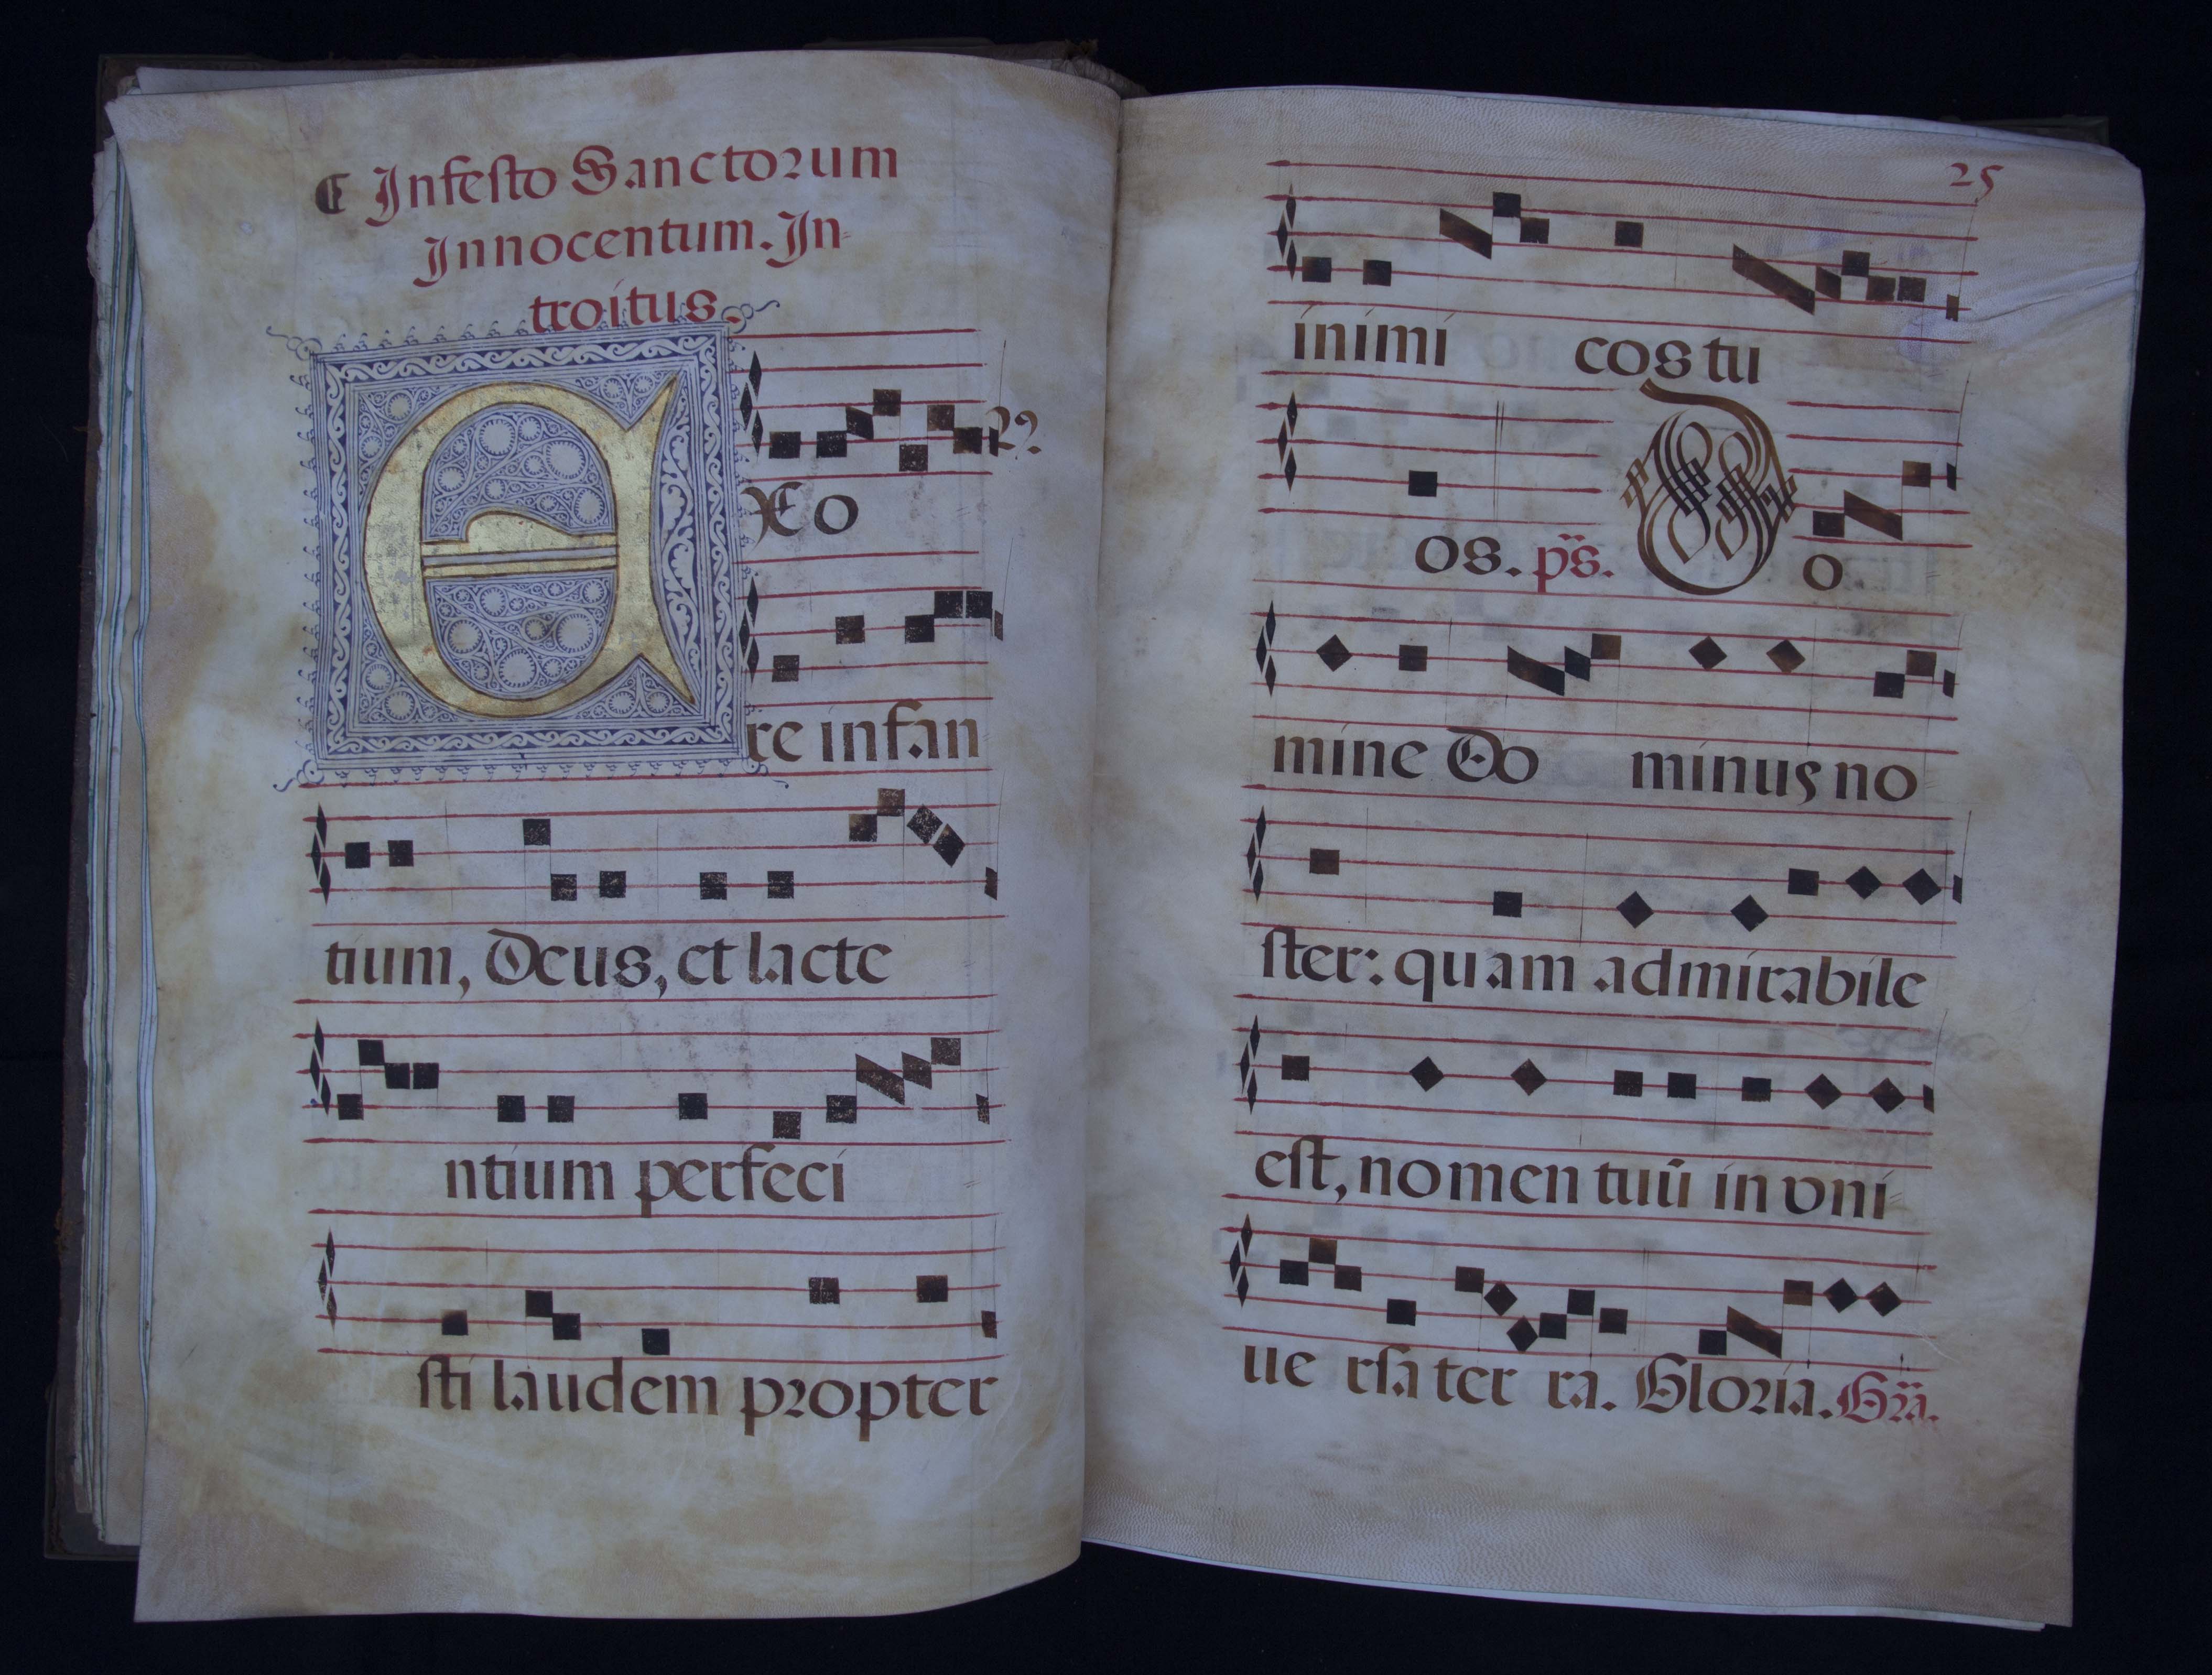 In festo Sanctorum
Innocentum. In-
troitus.
EX o
re infan
tium, Deus, et lacte
ntium perfeci
sti laudem propter
25
inimi cos tu
os. ps. Do
mine Do minus no
ster: quam admirabile
est, nomen tuū in vni
ue rsa ter ra. Gloria. Gra.